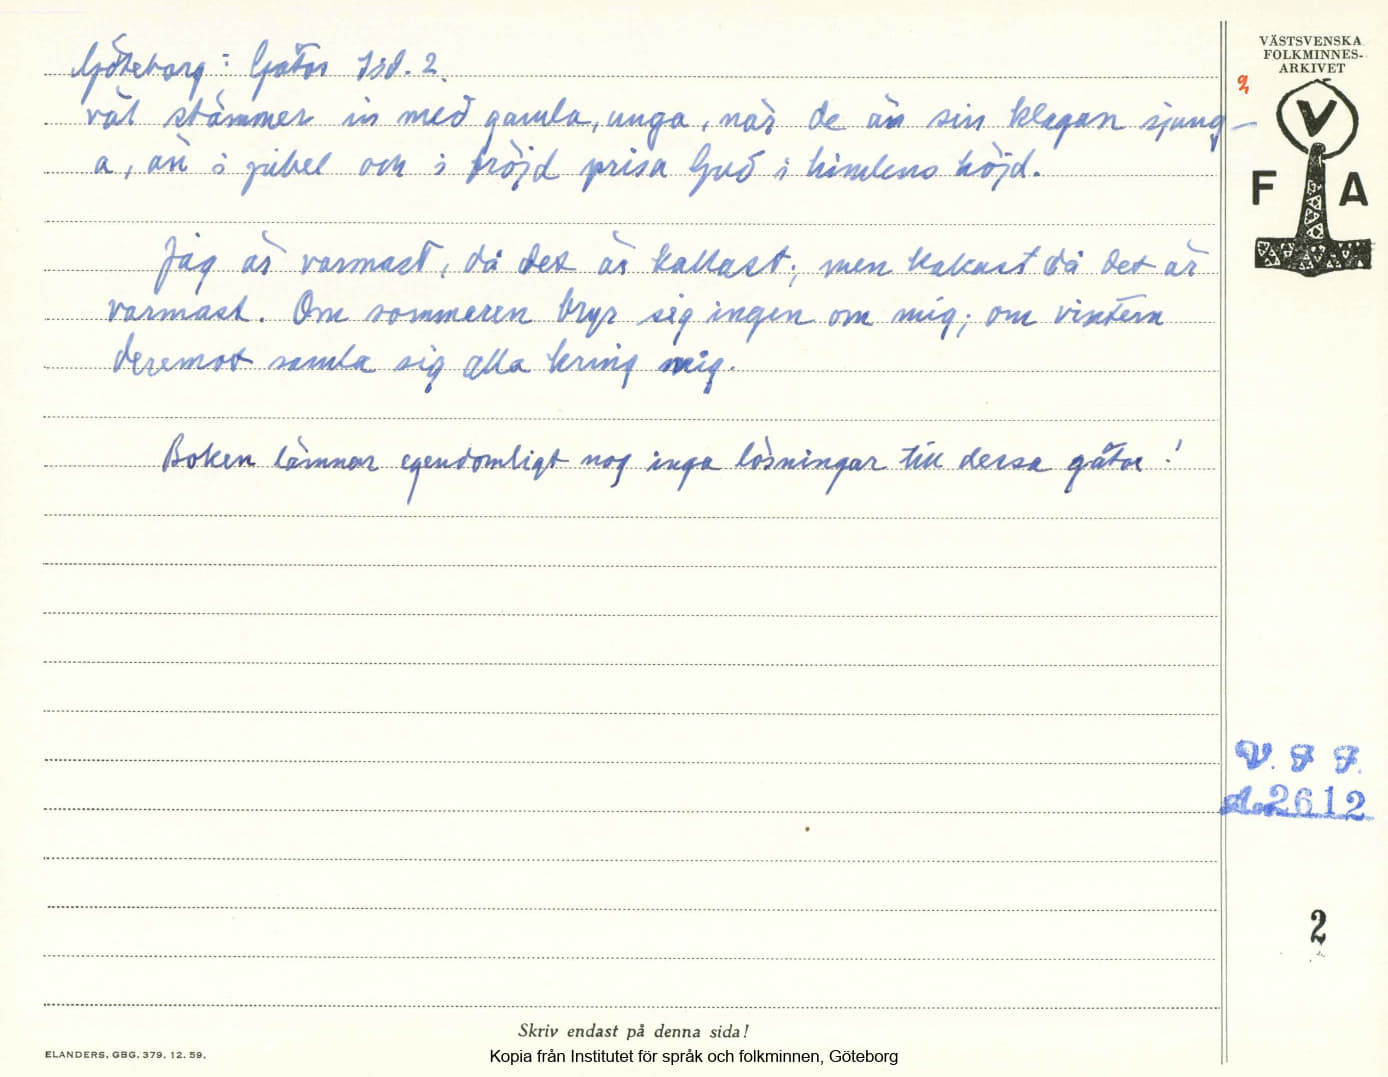 Göteborg: Gåtor sid. 2.
väl stämmer in med gamla, unga, när de än sin klagan sjung-
a, än i jubel och i fröjd prisa Gud i himlens höjd.
Jag är varmast, då det är kallast; men kallast då det är
varmast. Om sommaren bryr sig ingen om mig; om vintern
deremot samla sig alla kring mig.
Boken lämnar egendomligt nog inga lösningar till dessa gåtor!
VÄSTSVENSKA
FOLKMINNES-
ARKIVET
2
V
F A
V. F. F.
2612
2
Skriv endast på denna sida!
ELANDERS, GBG. 379. 12. 59.
Kopia från Institutet för språk och folkminnen, Göteborg